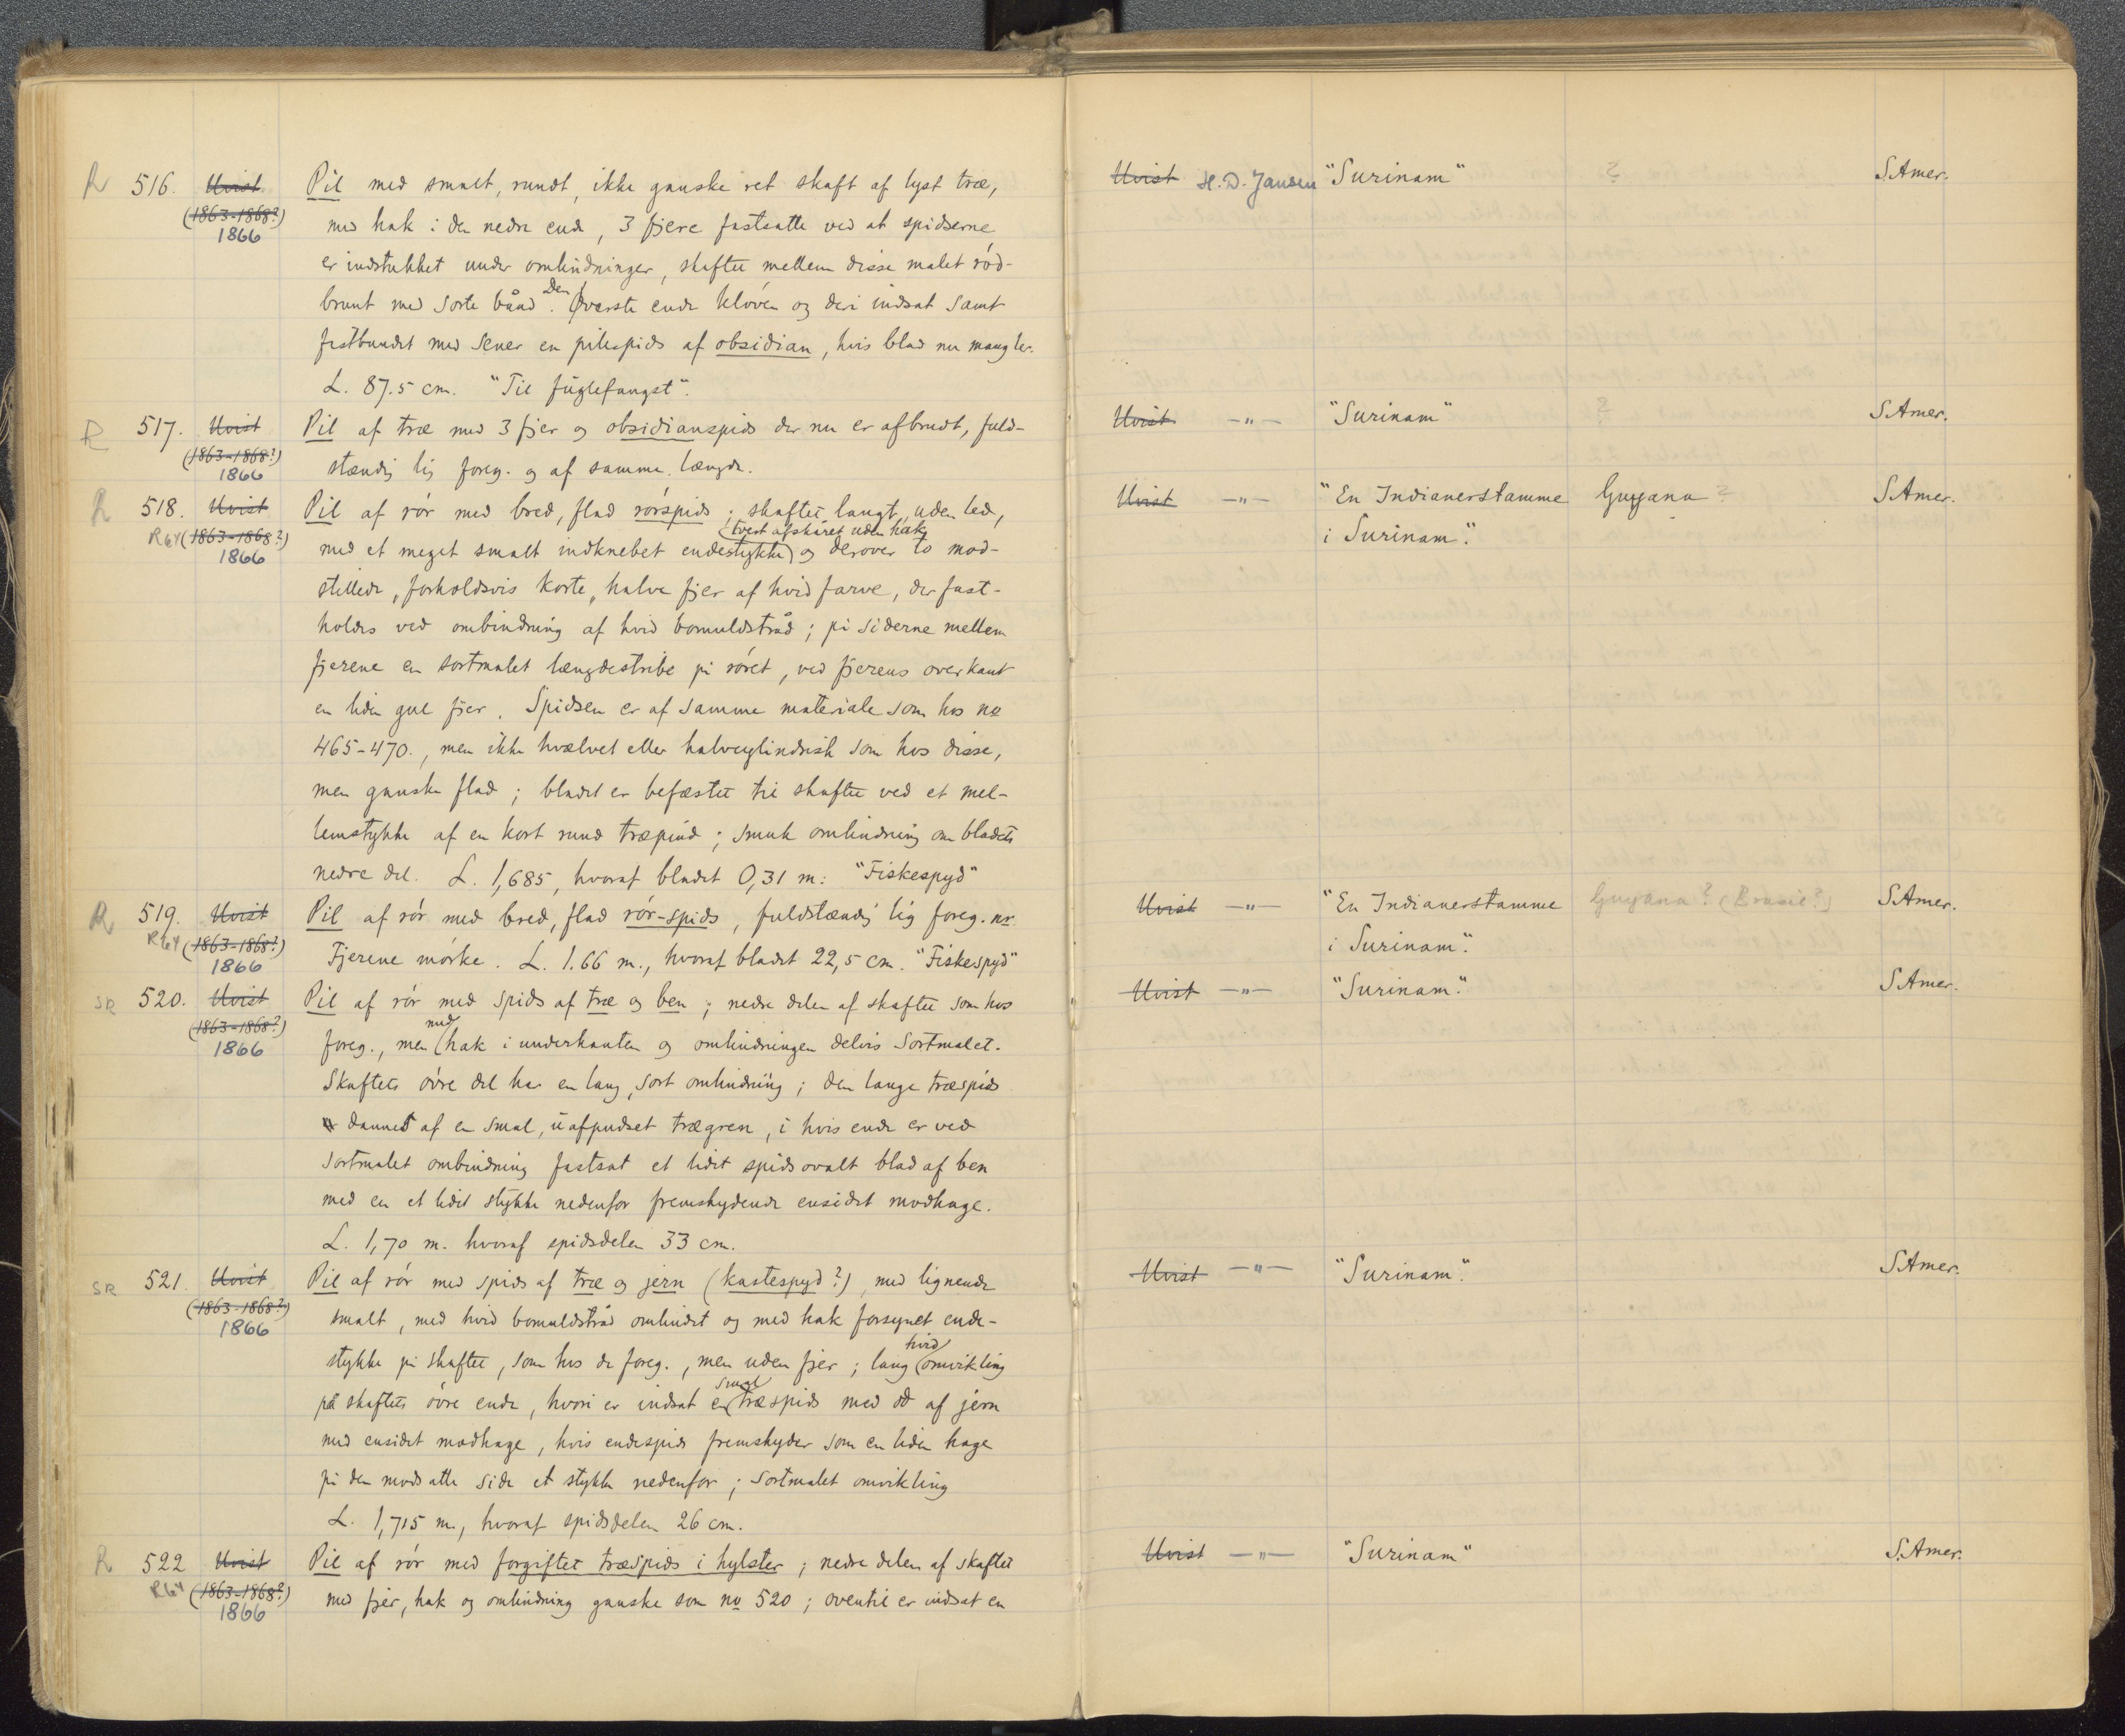 R 516. Uvist Pil med smalt, rundt, ikke ganske ret skaft af lyst træ,
(1863-1868?) med hak i den nedre ende, 3 fjere fastsatte ved at spidserne
1866
er indstukket under ombindninger, skaftet mellem disse malet rød-
brunt med sorte bånd. Den øverste ende kløven og deri indsat samt
fastbundet med sener en pilespids af obsidian, hvis blad nu mangler.
L. 87.5 cm. "Til fuglefangst".
R 517. Uvist Pil af træ med 3 fjer og obsidianspids der nu er afbrudt, fuld-
(1863-1868?) stændig lig foreg. og af samme længde.
1866
R 518. Uvist Pil af rør med bred, flad rørspids; skaftet langt, uden led,
tvert afskåret uden hak
R64 (1863-1868?) med et meget smalt indknebet endestykke og derover to mod-
1866
stillede, forholdsvis korte, halve fjer af hvid farve, der fast-
holdes ved ombindning af hvid bomuldstråd; på siderne mellem
fjerene en sortmalet længdestribe på røret, ved fjerens overkant
en liden gul fjer. Spidsen er af samme materiale som hos no
465-470., men ikke hvælvet eller halvcylindrisk som hos disse,
men ganske flad; bladet er befæstet til skaftet ved et mel-
lemstykke af en kort rund træpind; smuk ombindning om bladets
nedre del. L. 1,685, hvoraf bladet 0,31 m: "Fiskespyd"
R 519. Uvist Pil af rør med bred, flad rør-spids, fuldstændig lig foreg. nr.
R64 (1863-1868?) Fjerene mørke. L. 1.66 m., hvoraf bladet 22,5 cm. "Fiskespyd"
1866
SR 520. Uvist Pil af rør med spids af træ og ben; nedre delen af skaftet som hos
(1863-1868?) foreg., men med hak i underkanten og ombindningen delvis sortmalet.
1866
Skaftets øvre del har en lang, sort ombindning; den lange træspids
er dannet af en smal, uafpudset trægren, i hvis ende er ved
sortmalet ombindning fastsat et lidet spidsovalt blad af ben
med en et lidet stykke nedenfor fremskydende ensidet modhage.
L. 1,70 m. hvoraf spidsdelen 33 cm.
SR 521. Uvist Pil af rør med spids af træ og jern (kastespyd?), med lignende
(1863-1868?) smalt, med hvid bomuldstråd ombindet og med hak forsynet ende-
1866
stykke på skaftet, som hos de foreg., men uden fjer; lang hvid omvikling
på skaftets øvre ende, hvori er indsat en smal træspids med od af jern
med ensidet modhage, hvis endespids fremskyder som en liden hage
på den modsatte side et stykke nedenfor; sortmalet omvikling
L. 1,715 m., hvoraf spidsdelen 26 cm.
R 522 Uvist Pil af rør med forgiftet træspids i hylster; nedre delen af skaftet
R64 (1863-1868?) med fjer, hak og ombindning ganske som no 520; oventil er indsat en
1866
Uvist H. D. Jansen "Surinam" ? S.Amer.
Uvist —"— "Surinam" ? S.Amer.
Uvist —"— "En Indianerstamme Guyana? S.Amer.
i Surinam".
Uvist —"— "En Indianerstamme Guyana? (Brasil?) S.Amer.
i Surinam".
Uvist —"— "Surinam". S.Amer.
Uvist —"— "Surinam". S.Amer.
Uvist —"— "Surinam" S.Amer.